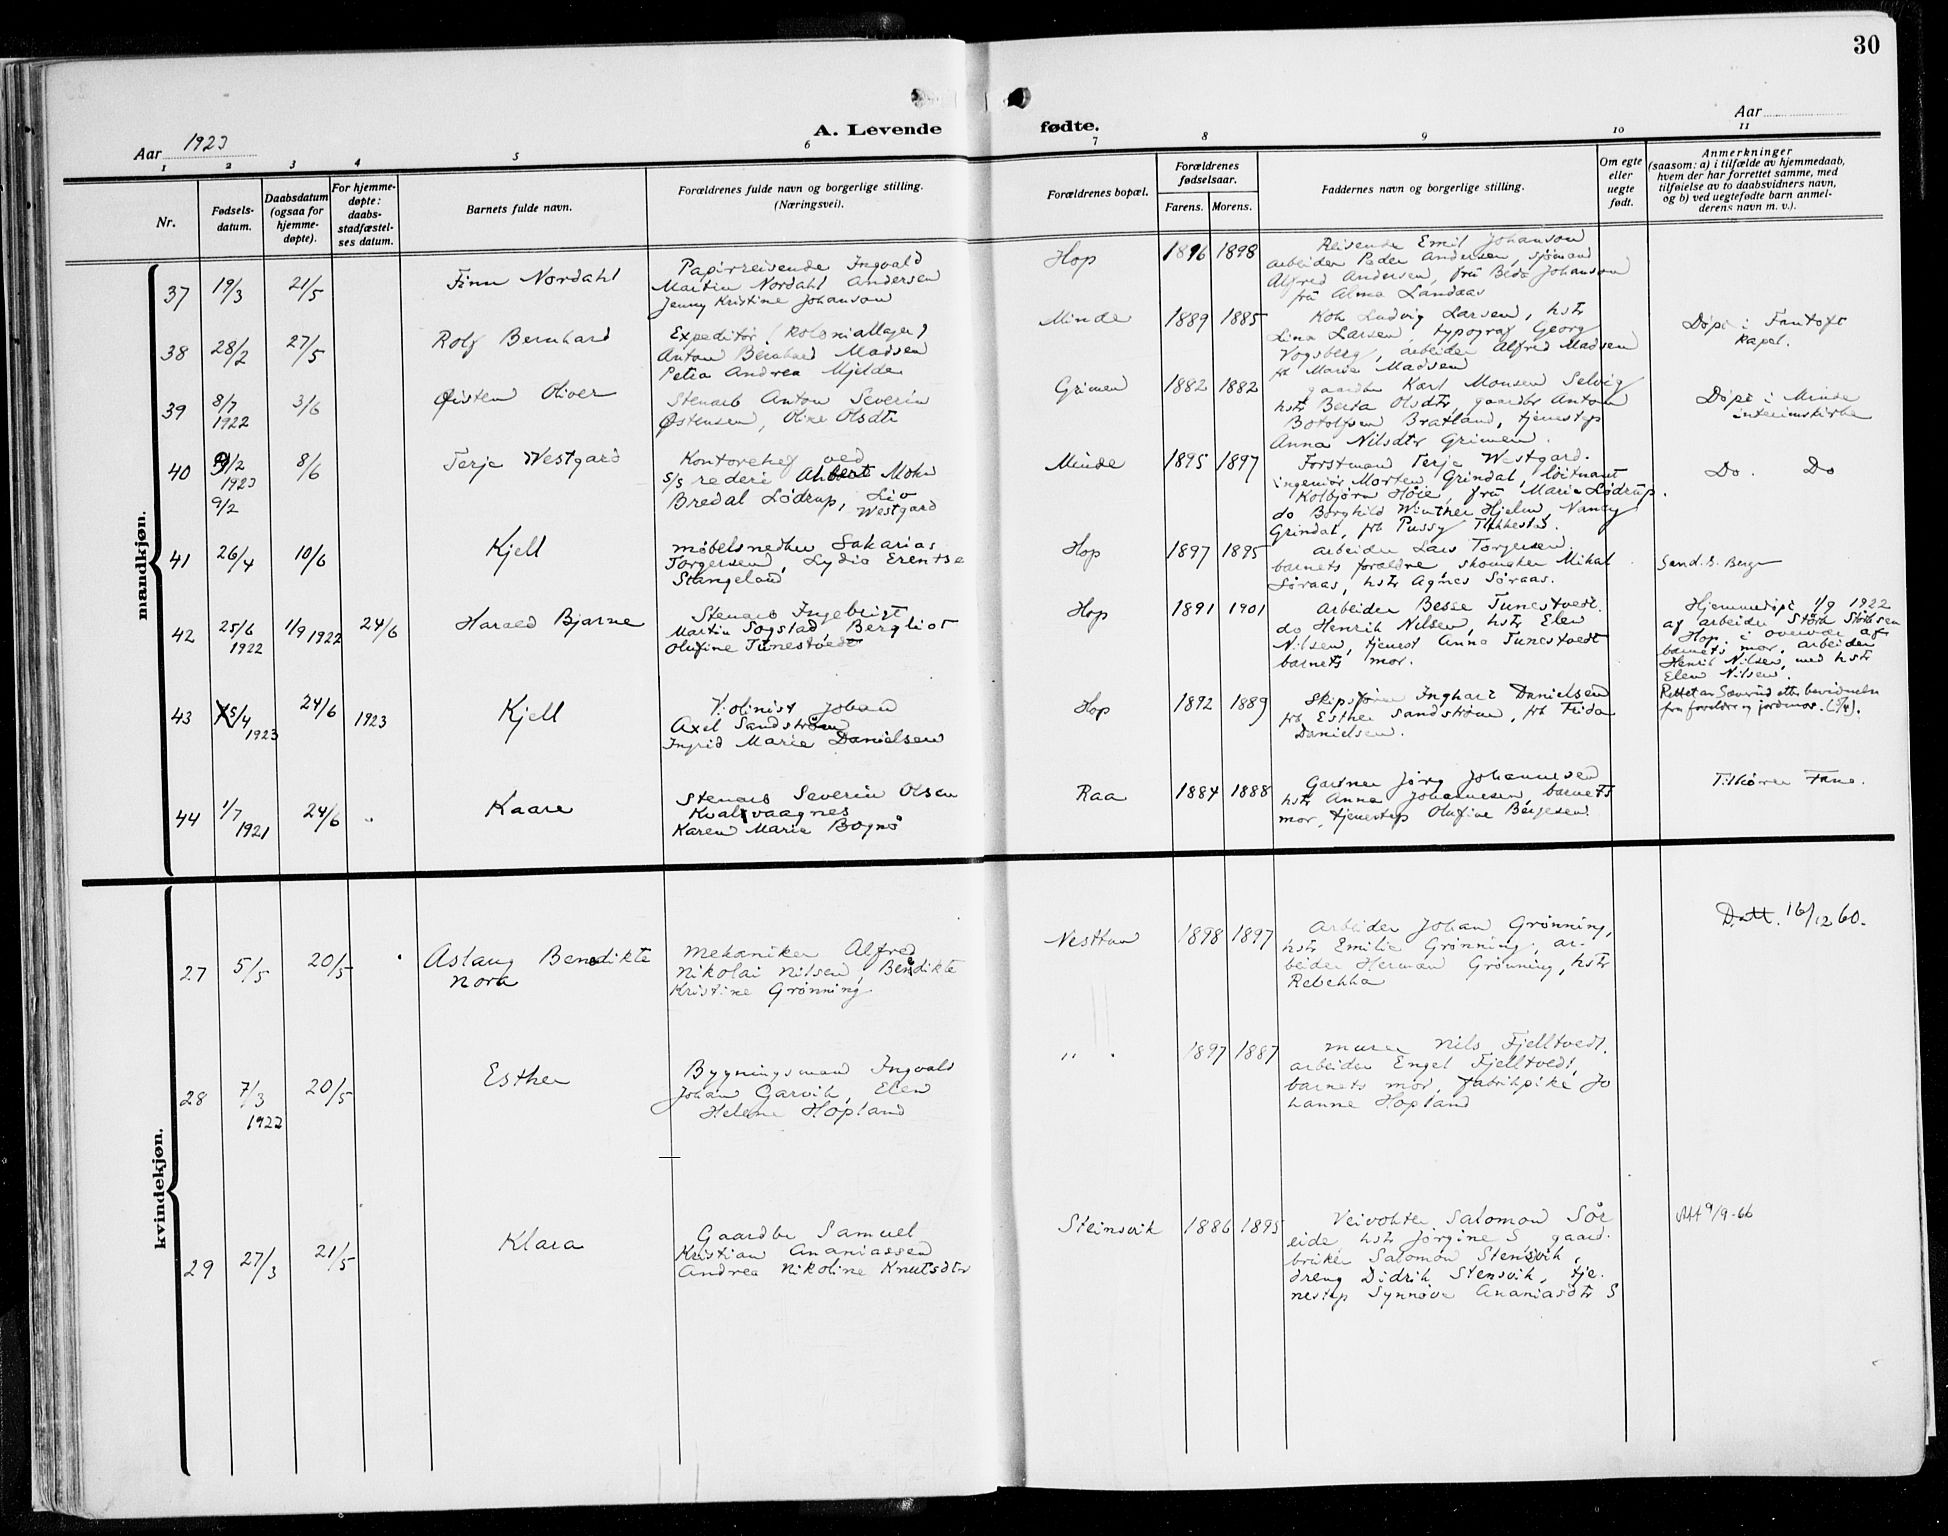 30
Aar 1923
A. Levende fødte.
Aar
1 2 3 4 5 6 7 8 9 10 11
Nr.
Fødsels-
datum.
Daabsdatum
(ogsaa for
hjemme-
døpte).
For hjemme-
døpte:
daabs-
stadfæstel-
ses datum.
Barnets fulde navn.
Forældrenes fulde navn og borgerlige stilling.
(Næringsvei).
Forældrenes bopæl.
Forældrenes
fødselsaar.
Farens. Morens.
Faddernes navn og borgerlige stilling.
Om egte
eller
uegte
født.
Anmerkninger
(saasom: a) i tilfælde av hjemmedaab,
hvem der har forrettet samme, med
tilføielse av to daabsvidners navn,
og b) ved uegtefødte barn anmel-
derens navn m. v.).
mandkjøn.
37 19/3 21/5 Finn Nordahl
Papirreisende Ingvald
Martin Nordahl Andersen
Jenny Kristine Johanson
Hop 1896 1898
Reisende Emil Johanson
arbeider Peder Andersen, sjømand
Alfred Andersen, frü Beda Johanson
frü Alma Landaas
38 28/2 27/5 Rolf Bernhard
Expeditør (kolonialager)
Anton Bernhard Madsen
Petra Andrea Mjelde
Minde 1889 1885
Kok Ludvig Larsen, hstr
Lina Larsen, typograf Georg
Vogsberg, arbeider Alfred Madsen
frk Marie Madsen
Døpt i Fantoft
kapel.
39 8/7 1922 3/6 Øisten Oliver
Stenarb Anton Severin
Østensen, Oline Olsdtr
Grimen 1882 1882
gaardbr Karl Monsen Selvig
hstr Berta Olsdtr, gaardbr Anton
Botolfsen Bratland, tjenestep
Anna Nilsdtr Grimen.
Døpt i Minde
interimskirke
40 9/2 1923 9/2 8/6 Terje Westgard
Kontorchef ved
s/s rederi Albert Mohn
Bredal Lødrup, Liv
Westgard
Minde 1895 1897
Forstmand Terje Westgard.
ingeniør Morten Grindal, løitnant
Kolbjørn Høie, frü Marie Lødrup.
do Borghild Winther Hjelm, Nancy
Grindal, frk Pussy
Do. Do
41 26/4 10/6 Kjell
møbelsnedker Sakarias
Torgersen, Lydia Erentse
Stangeland
Hop 1897 1895
arbeider Lars Torgersen.
barnets forældre skomaker Mikal
Søraas, hstr Agnes Søraas.
Sand. s. Berge
42 25/6 1922 1/9 1922 24/6 Harald Bjarne
Stenarb Ingebrigt
Martin Sogstad, Bergliot
Olufine Tunestvedt
Hop 1891 1901
Arbeider Besse Tunestvedt.
do Henrik Nilsen, hstr Elen
Nilsen, tjenest Anna Tunestvedt
barnets mor.
Hjemmedøpt 1/9 1922
af arbeider Størk Størksen
Hop. i overvær af
barnets mor, arbeider
Henrik Nilsen, med hstr
Elen Nilsen.
43 5/4 1923 24/6 1923 Kjell
Violinist Johan
Axel Sandstrøm
Ingrid Marie Danielsen
Hop 1892 1889
Skipsfører Inghart Danielsen
frk Esther Sandstrøm, frk Frida
Danielsen.
Rettet av Sæverud efter bevidnelse
fra foreldre og jordmor. (5/4).
44 1/7 1921 24/6 " Kaare
Stenarb Severin Olsen
Kvalvaagnes
Karen Marie Bognø
Raa 1884 1888
Gartner Jørg Johannesen
hstr Anna Johannesen, barnets
mor, tjenestep Olufine Børgesen.
Tilhører Fane.
kvindekjøn.
27 5/5 20/5 Aslaug Benedikte
Nora
Mekaniker Alfred
Nikolai Nilsen, Benedikte
Kristine Grønning
Nesttun 1898 1897
Arbeider Johan Grønning,
hstr Emilie Grønning, ar-
beider Herman Grønning, hstr
Rebekka
Datt. 16/12 60.
28 7/3 1922 20/5 Esther
Bygningsmand Ingvald
Johan Garvik, Elen
Helene Hopland
" . 1897 1887
murer Nils Fjelltvedt.
arbeider Engel Fjelltvedt,
barnets mor, fabrikpike Jo
hanne Hopland
29 27/3 21/5 Klara
Gaardbr Samuel
Kristian Ananiassen
Andrea Nikoline Knutsdtr
Steinsvik 1886 1895
Veivokter Salomon Sør
eide hstr Jørgine S gaard.
bruker Salomon Stensvik,
dreng Didrik Stensvik, tje.
nestep Synnøve Ananiasdtr S
Att 9/9-66